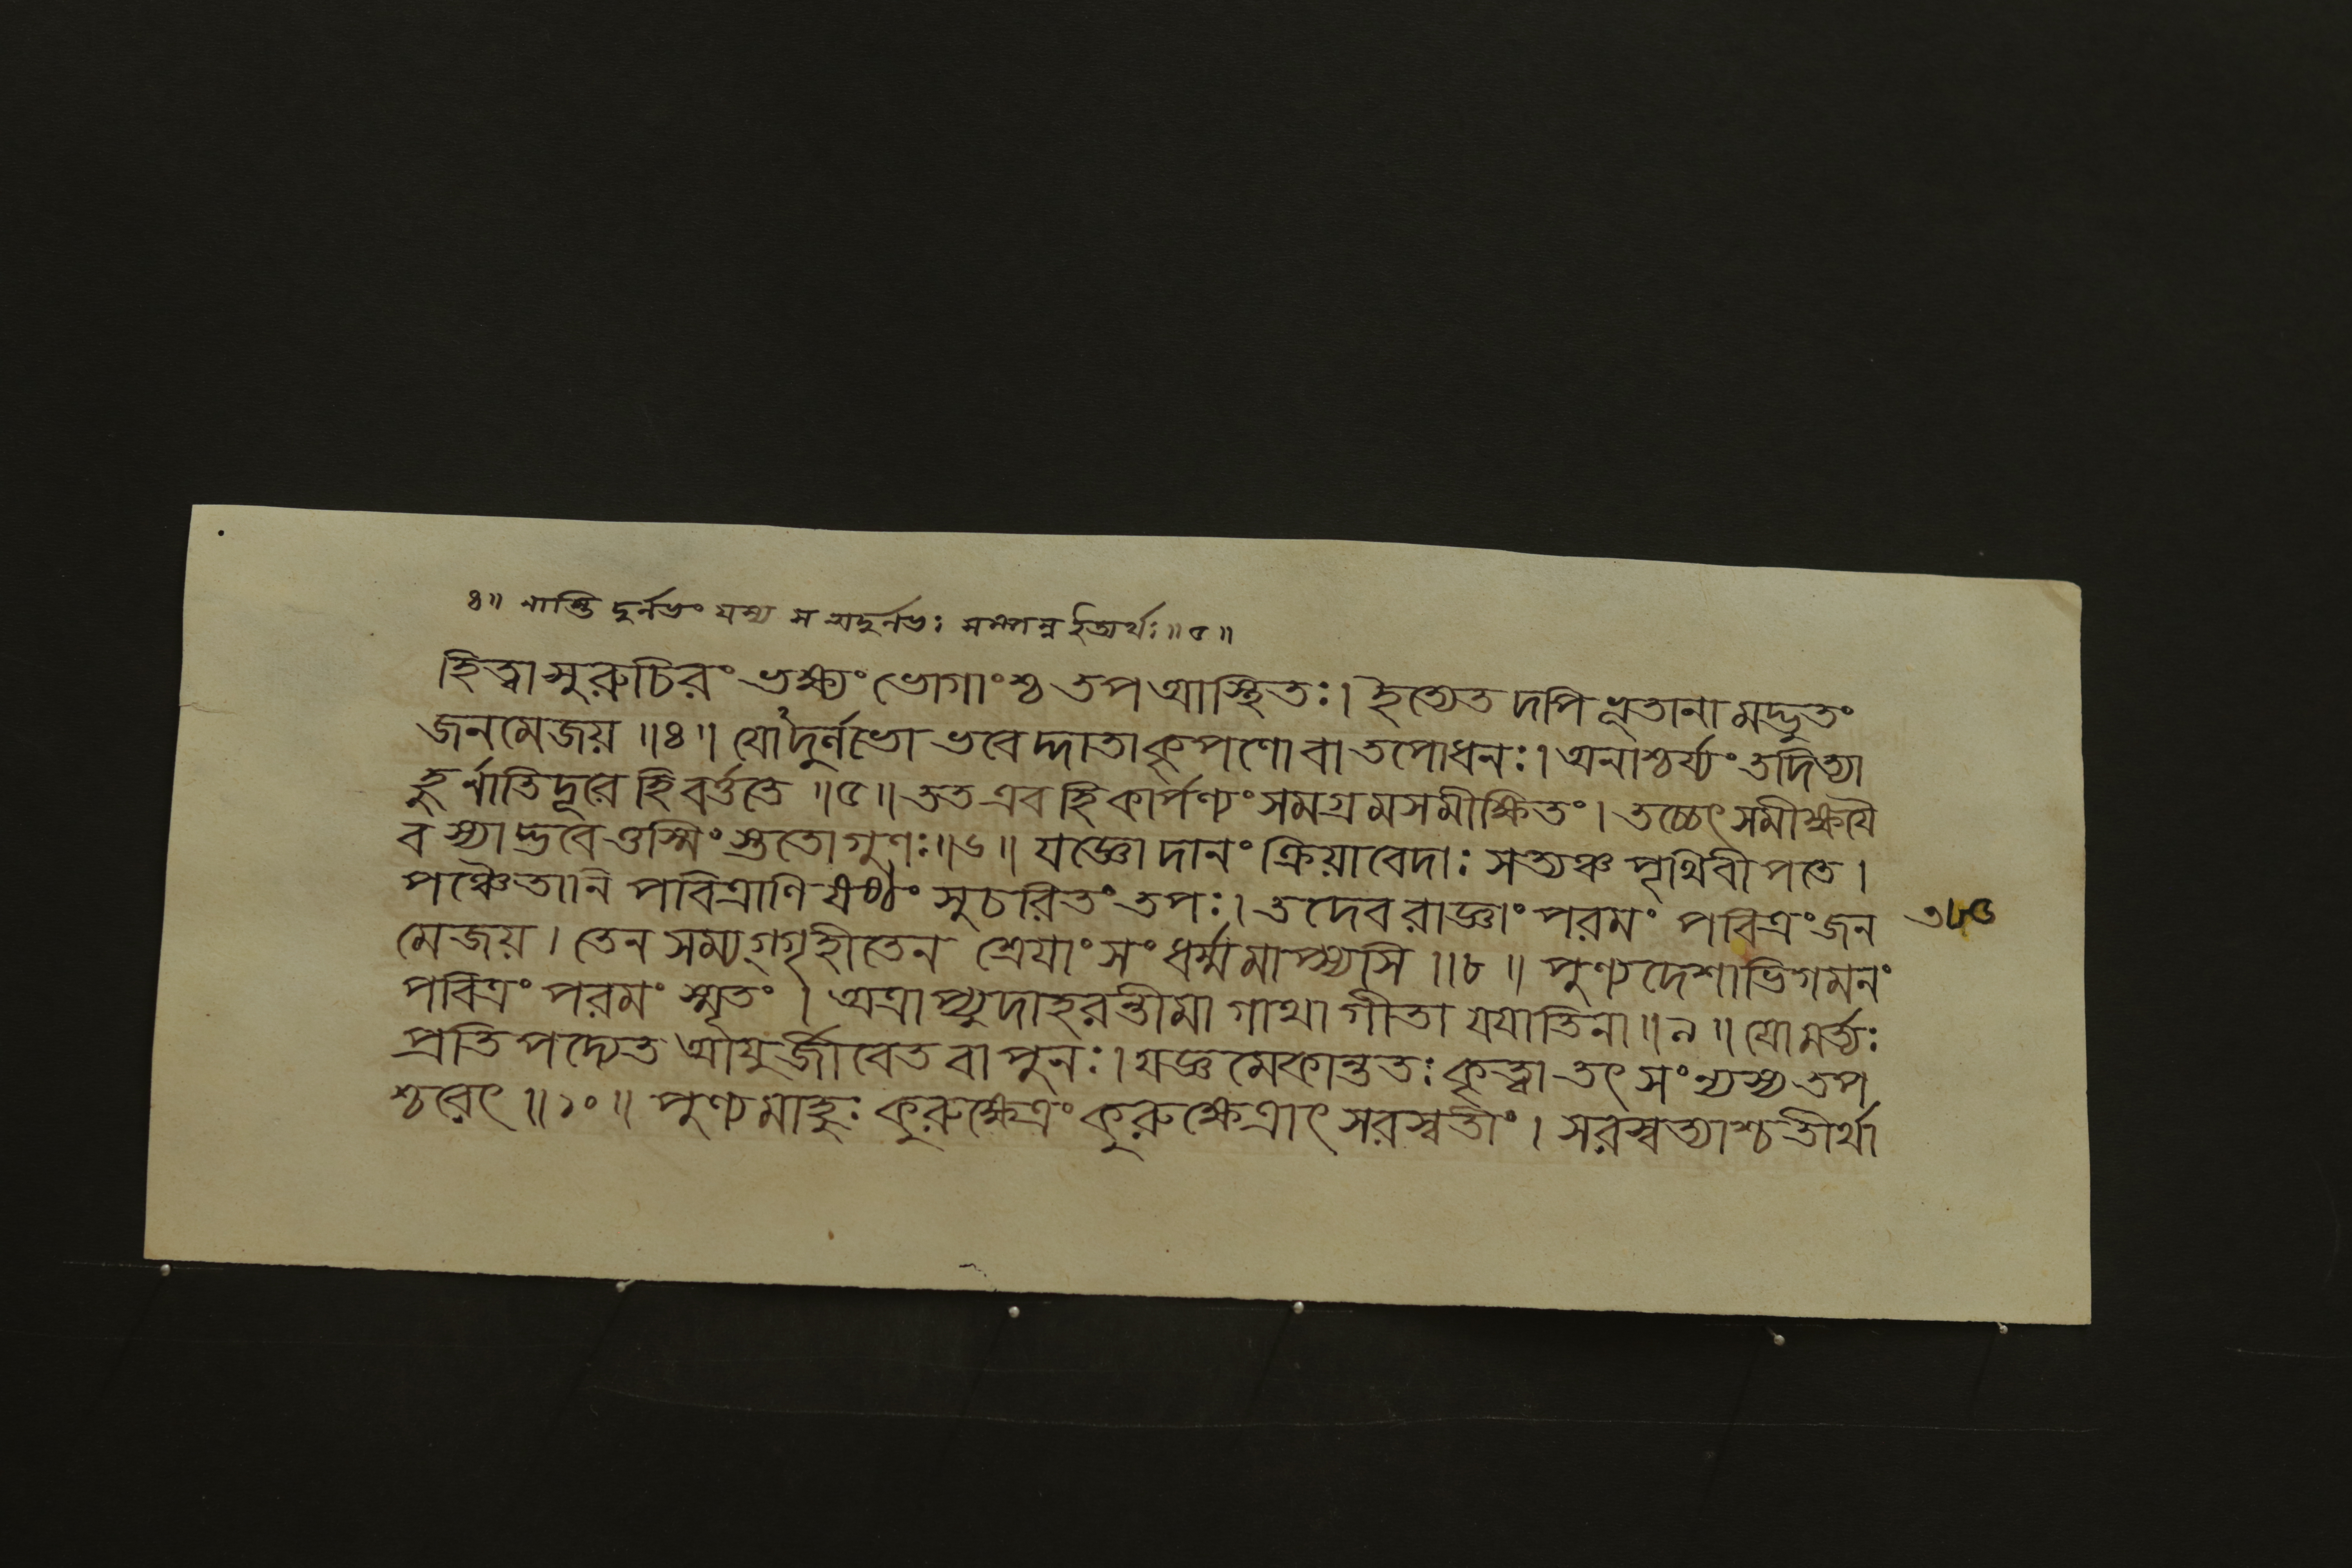 ৪॥ নাস্তি দুর্লভং যস্য স অদুর্লভঃ সম্পন্ন ইত্যর্থঃ॥৫॥
হিত্বা সুরুচিরং ভক্ষ্যং ভোগাংশ্চ তপ আস্থিতঃ। ইত্যেতদপি ভূতানামদ্ভুতং
জনমেজয়॥৪॥ যো'দুর্লভো ভবেদ্দাতা কৃপণো বা তপোধনঃ। অনাশ্চর্য্যং তদিত্যা
হুর্নাতিদূরে হি বর্ত্ততে॥৫॥ তত এব হি কার্পণ্যং সমগ্রমসমীক্ষিতং। তচ্চেৎ সমীক্ষয়ৈ
ব স্যাদ্ভবেত্তস্মিংস্ততো গুণঃ॥৬॥ যজ্ঞো দানং ক্রিয়া বেদাঃ সত্যঞ্চ পৃথিবীপতে।
পঞ্চৈতানি পবিত্রাণি ষষ্ঠং সুচরিতং তপঃ। তদেব রাজ্ঞাং পরমং পবিত্রং জন
৩৮৫
মেজয়। তেন সম্যগ্গৃহীতেন শ্রেয়াংসং ধর্ম্মমাপ্স্যসি॥৮॥ পুণ্যদেশাভিগমনং
পবিত্রং পরমং স্মৃতং। অত্রাপ্যুদাহরন্তীমা গাথা গীতা যযাতিনা॥৯॥ যো মর্ত্যঃ
প্রতিপদ্যেত আয়ুর্জীবেত বা পুনঃ। যজ্ঞমেকান্ততঃ কৃত্বা তৎ সংন্যস্য তপ
শ্চরেৎ॥১০॥ পুণ্যমাহুঃ কুরুক্ষেত্রং কুরুক্ষেত্রাৎ সরস্বতীং। সরস্বত্যাশ্চ তীর্থা